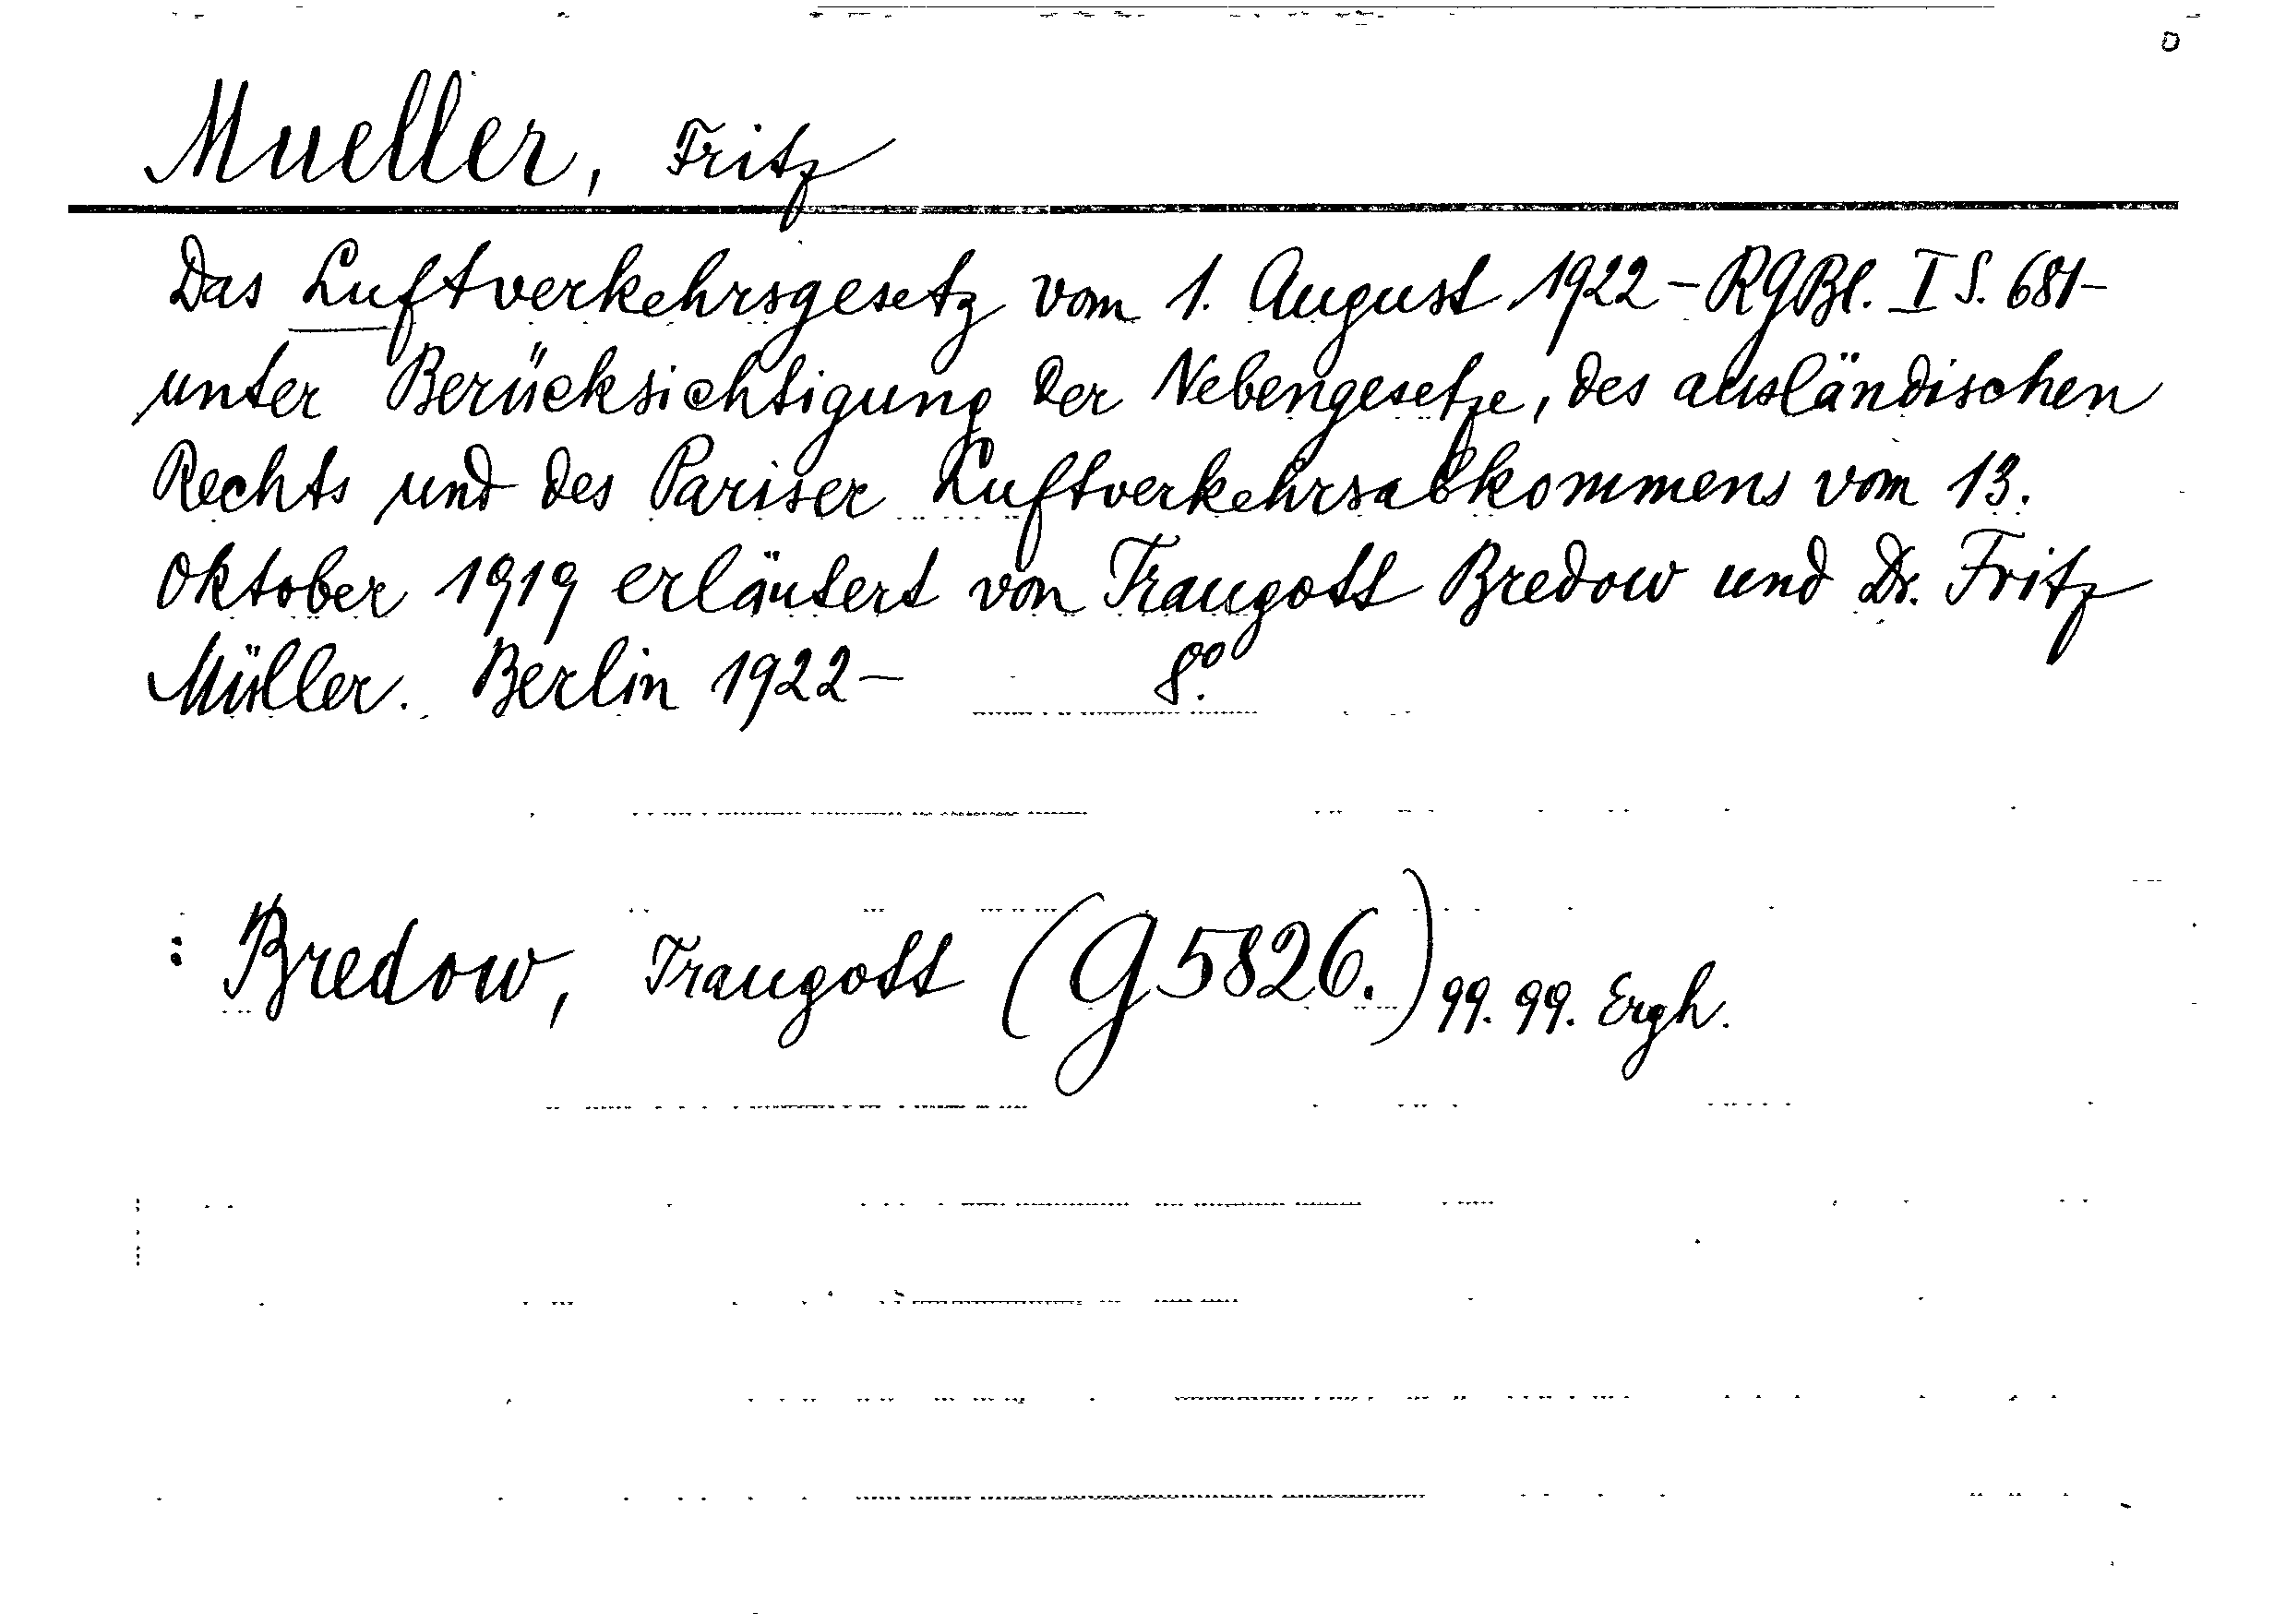 Mueller, Fritz
Das Luftverkehrsgesetz vom 1. August 1922 – RGBl. I S. 681 –
unter Berücksichtigung der Nebengesetze, des ausländischen
Rechts und des Pariser Luftverkehrsabkommens vom 13.
Oktober 1919 erläutert von Traugott Bredow und Dr. Fritz
Müller. Berlin 1922 – 8°.
: Bredow, Traugott (G 5826.) 99. 99. Ergh.